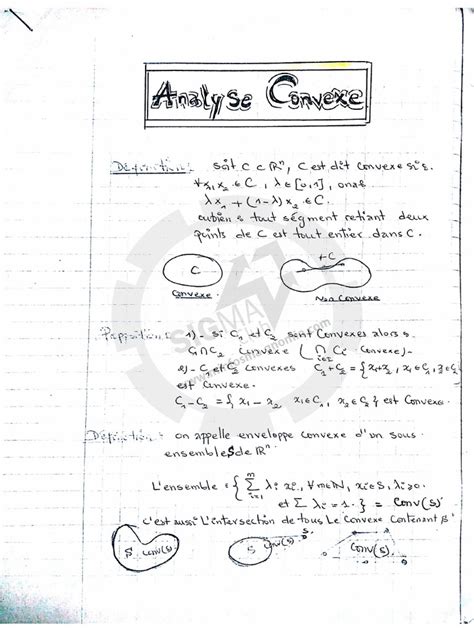 Analyse Convexe
Définition: Soit C ⊂ ℝⁿ, C est dit convexe si:
∀x₁,x₂ ∈ C, λ ∈ [0,1], on a
λx₁ + (1-λ)x₂ ∈ C.
oubien s tout ségment reliant deux
points de C est tout entier dans C.
C
convexe
+C
Non Convexe
Proposition: 1)- Si C₁ et C₂ sont Convexes alors
C₁∩C₂ Convexe (∩ Ci Convexe)-
2)- C₁ et C₂ convexes C₁+C₂ = {x₁+x₂, x₁∈C₁,
est Convexe.
C₁-C₂ = {x₁-x₂ x₁∈C₁, x₂∈C₂} est Convexe
Définition: on appelle enveloppe convexe d'un sous
ensemble S de ℝⁿ
L'ensemble = {∑ᵢ₌₁ᵐ λᵢ xᵢ, ∀m∈ℕ, xᵢ∈S, λᵢ≥0.
et ∑ λᵢ = 1.} = Conv(S)
c'est aussi L'intersection de tous Le Convexe Contenant S
S conv(S)
S conv(S)
Conv(S)
SIGMA